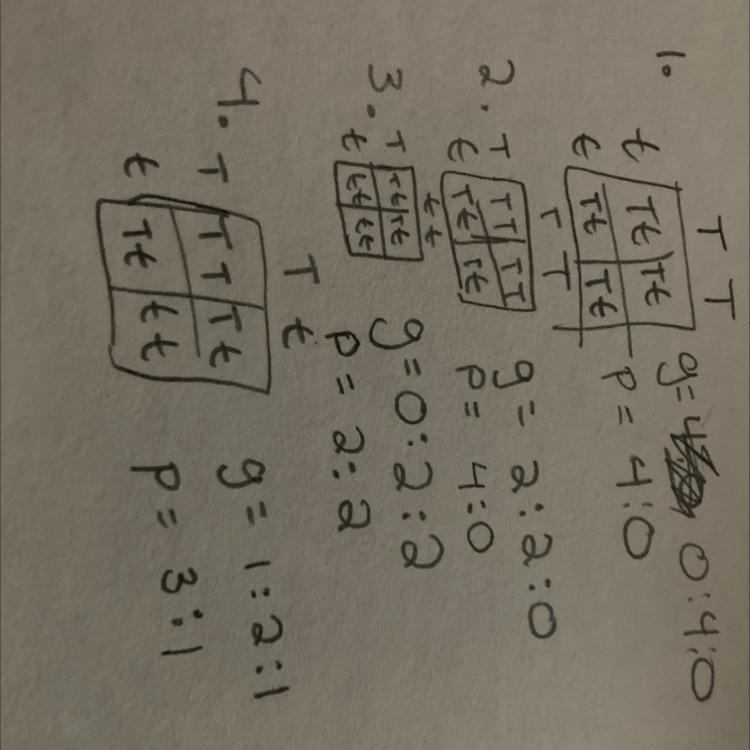 1. T T
g= 0:4:0
t Tt Tt
p = 4:0
t Tt Tt
T T
2. T TT TT g = 2:2:0
t Tt Tt p = 4:0
t t
3. T Tt Tt g = 0:2:2
t tt tt p = 2:2
T t
4. T TT Tt g = 1:2:1
t Tt tt p = 3:1